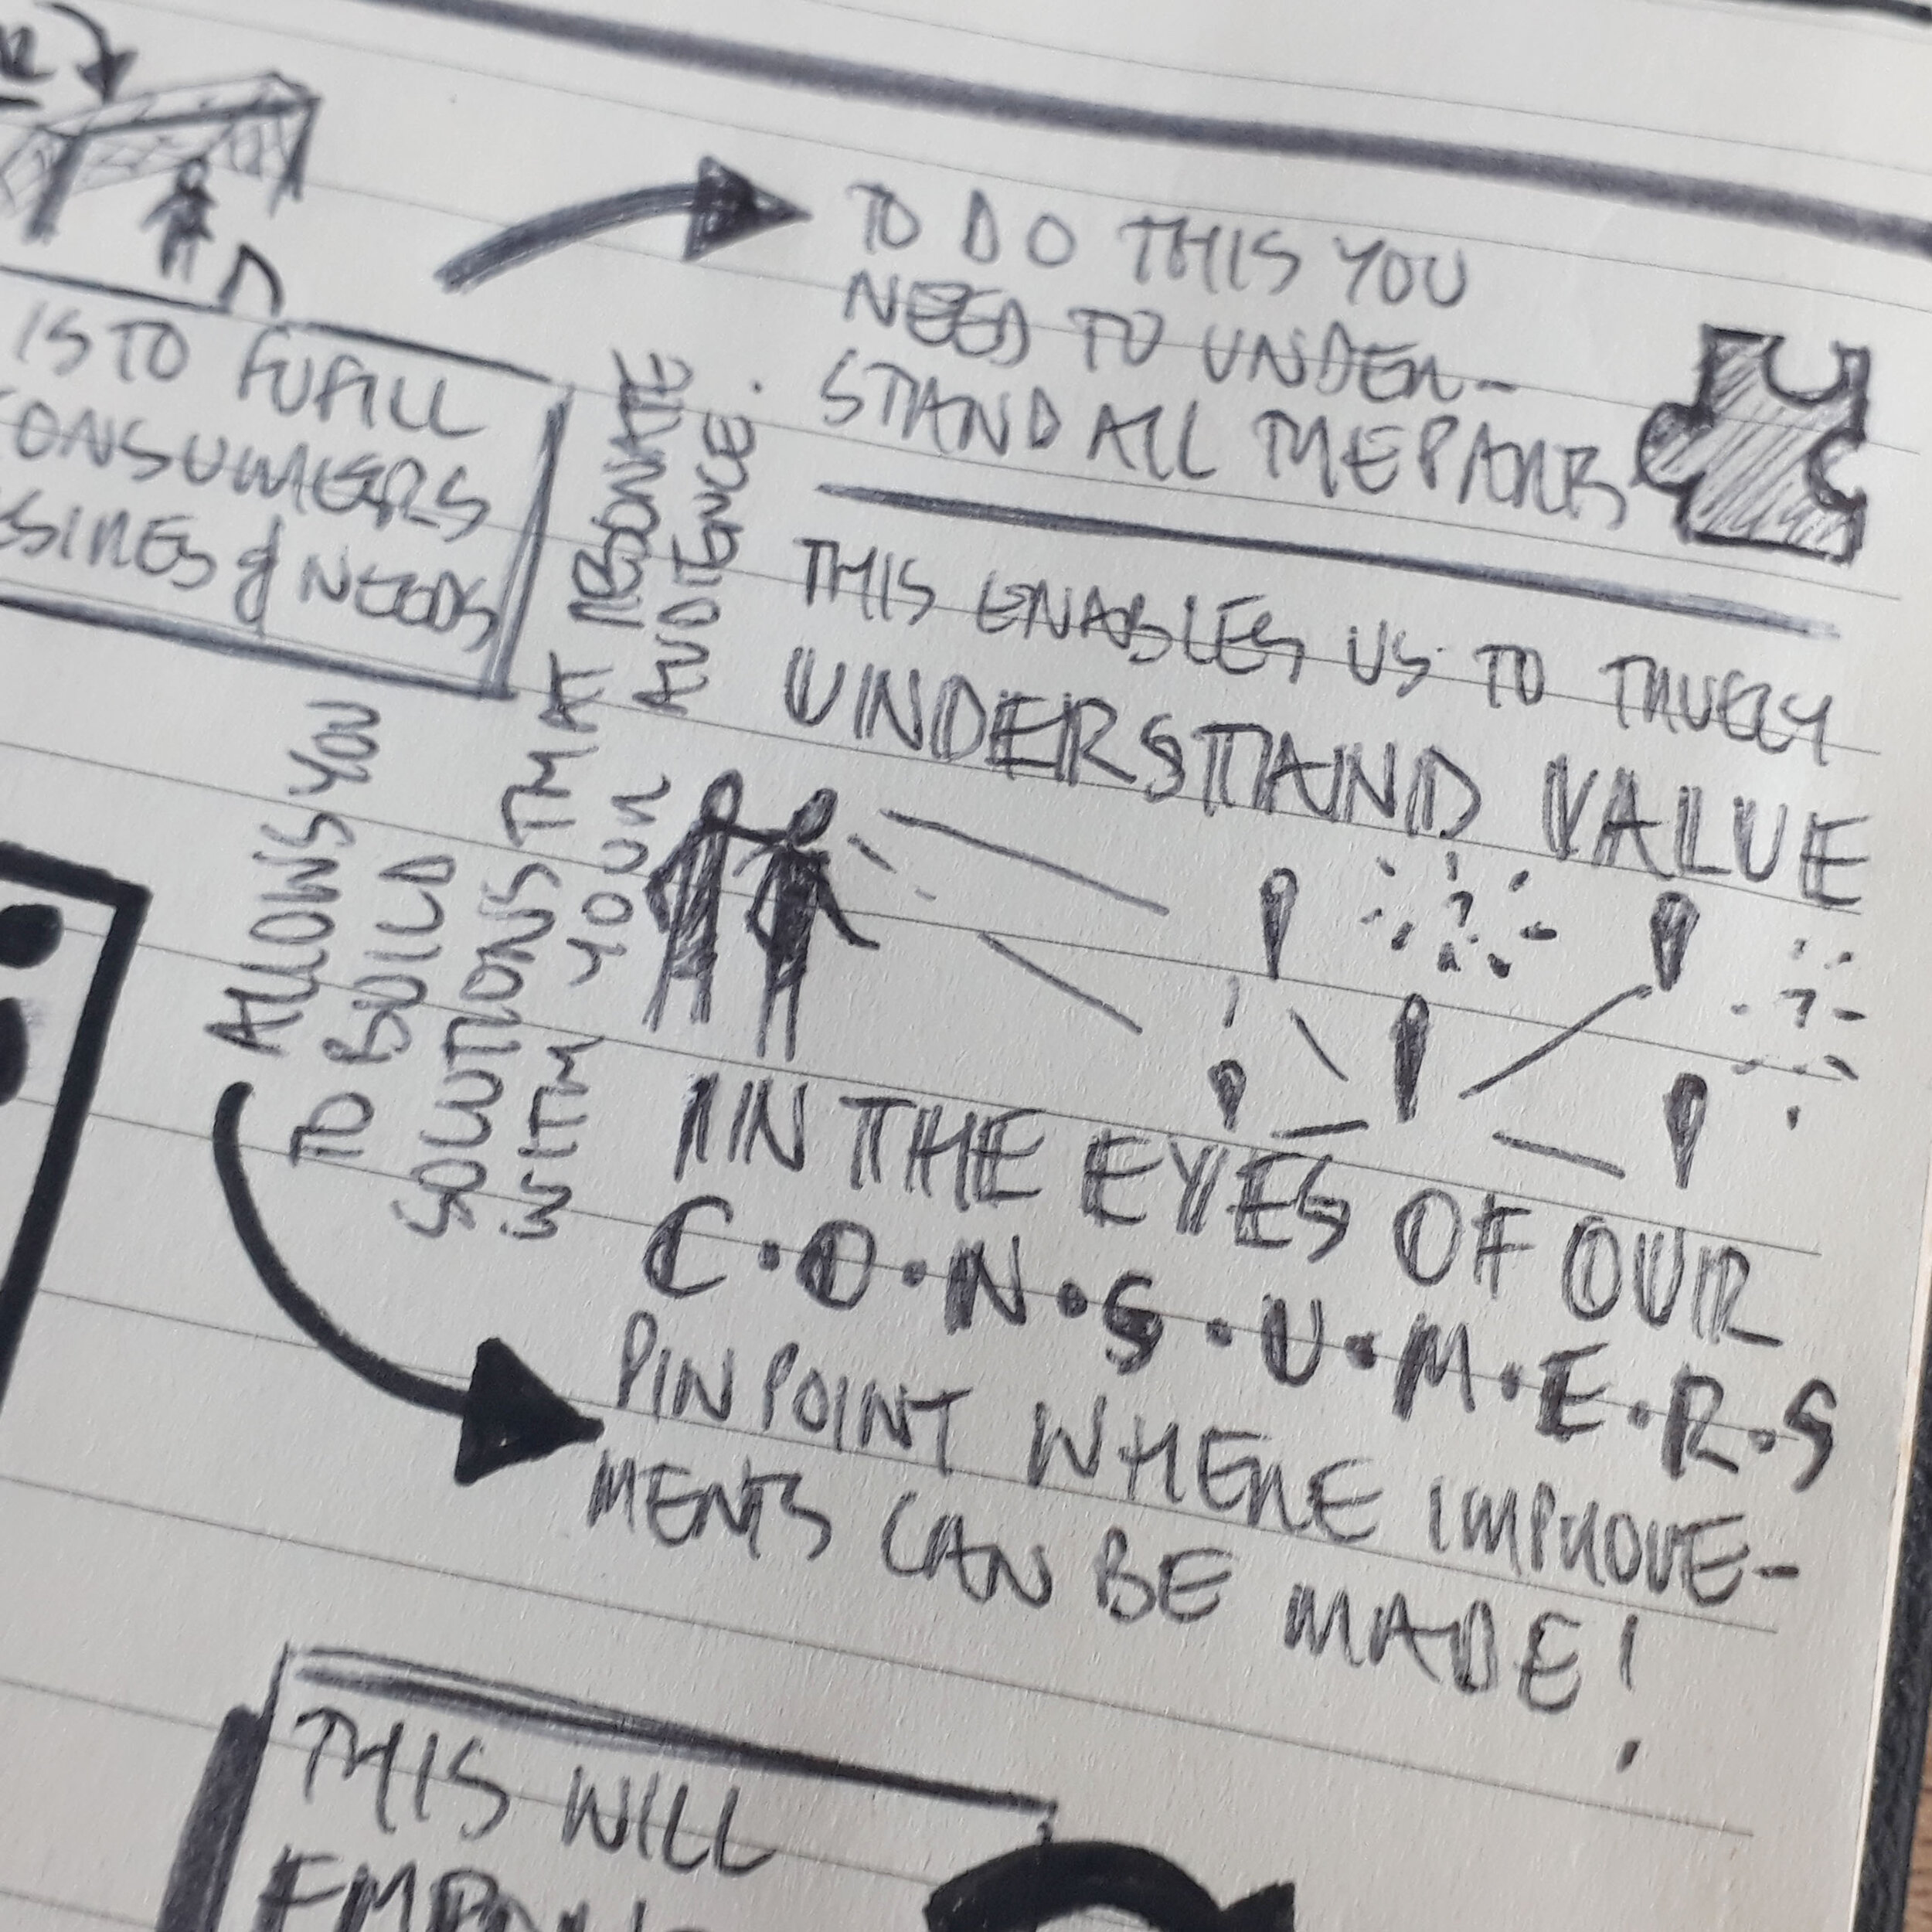 IS TO FUFILL
CONSUMERS
& NEEDS
TO DO THIS YOU
NEED TO UNDER-
STAND ALL THE PARTS
THIS ENABLES US TO TRUELY
UNDERSTAND VALUE
IN THE EYES OF OUR
C.O.N.S.U.M.E.R.S
PINPOINT WHERE IMPROVE-
MENTS CAN BE MADE!
ALLOWS YOU
TO BUILD
SOLUTIONS THAT RESONATE
WITH YOUR AUDIENCE.
THIS WILL